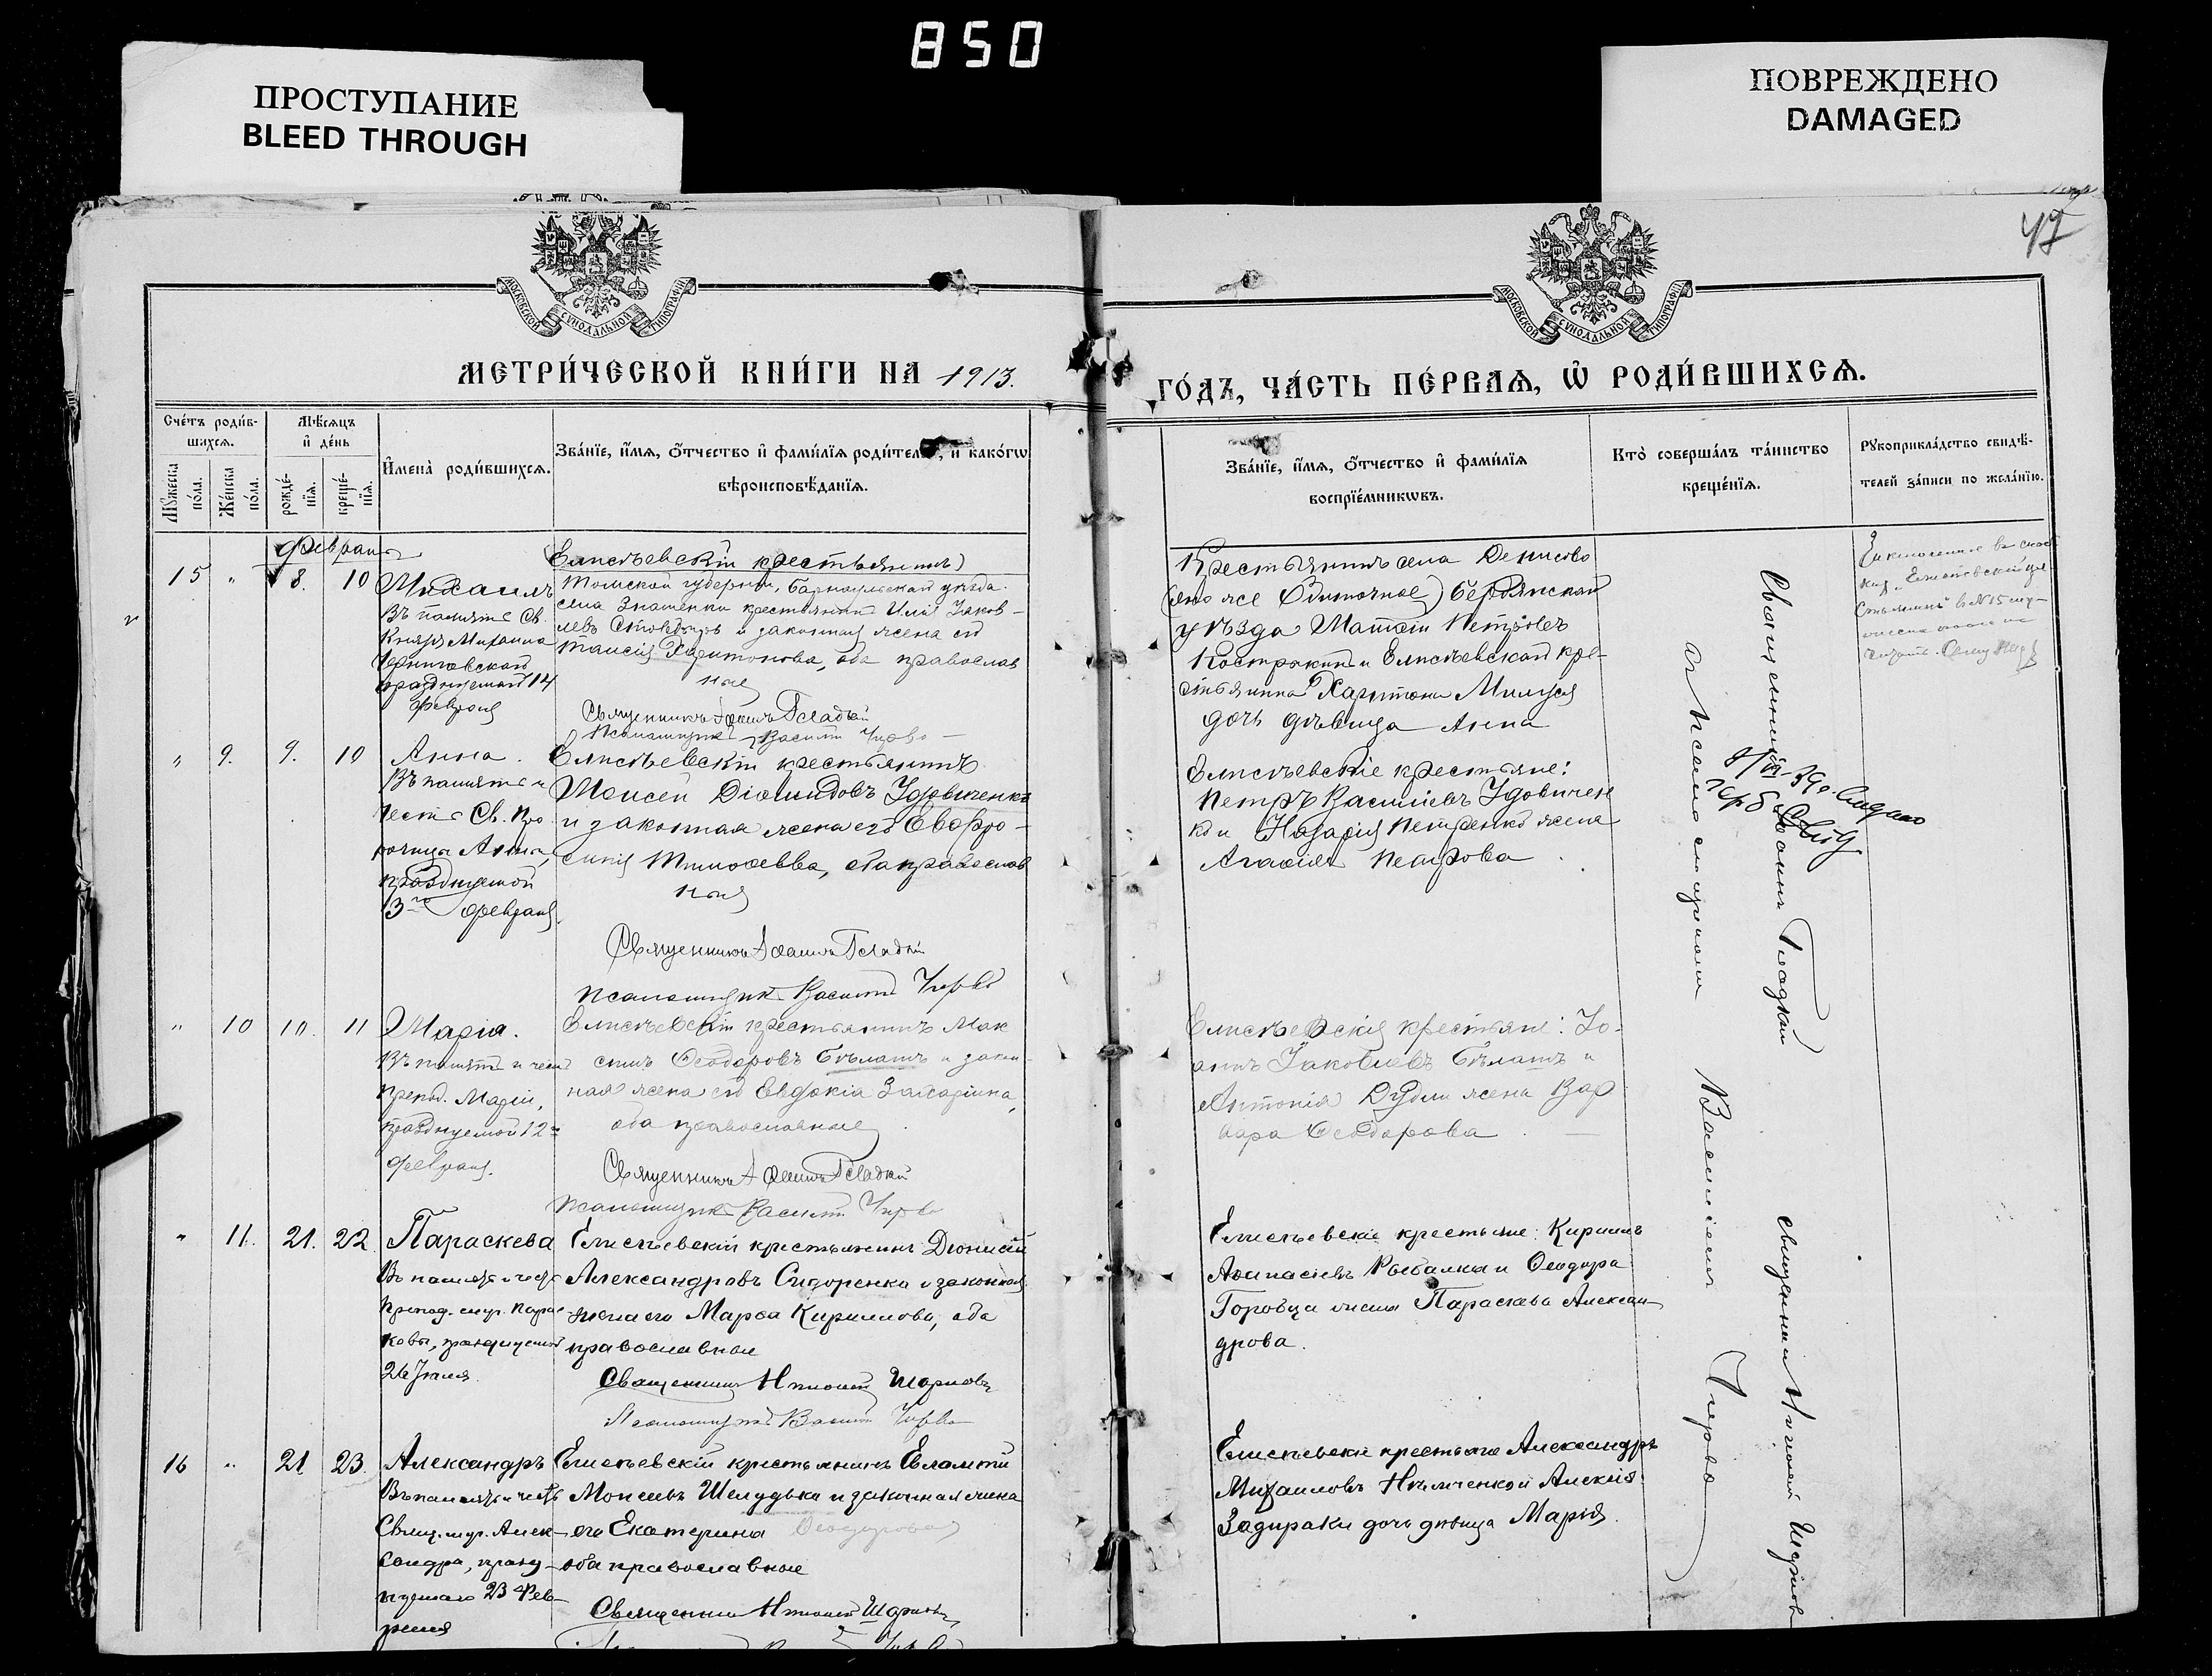 850
ПРОСТУПАНИЕ
BLEED THROUGH
ПОВРЕЖДЕНО
DAMAGED
47
МОСКОВСКОЙ СУНОДАЛЬНОЙ ТИПОГРАФІИ
МОСКОВСКОЙ СУНОДАЛЬНОЙ ТИПОГРАФІИ
МЕТРИ́ЧЕСКОЙ КНИ́ГИ НА 1913.
ГО́ДЪ, ЧА́СТЬ ПЕ́РВАѦ, Ѡ РОДИ́ВШИХСѦ.
Сче́тъ роди́в-
шихсѧ.
Мꙋ́жеска по́ла.
Же́нска по́ла.
Мѣ́сѧцъ
и де́нь
рожде́-
нїѧ.
креще́-
нїѧ.
И҆мена̀ роди́вшихсѧ.
Зва́нїе, и҆́мѧ, ѻ҆́тчество и҆ фами́лїѧ роди́телей, и҆ како́гѡ
вѣроисповѣ́данїѧ.
Зва́нїе, и҆́мѧ, ѻ҆́тчество и҆ фами́лїѧ
воспрїе́мникѡвъ.
Кто̀ соверша́лъ та́инство
креще́нїѧ.
Рꙋкоприкла́дство свидѣ́-
телей за́писи по жела́нїю.
Февраль
15 " 8. 10
Михаилъ
Въ память Св.
Князя Михаила
Черниговскаго
празднуемаго 14
Февраля
Елисѣевскій крестьянинъ)
Томской губерніи, Барнаульскаго уѣзда
села Знаменки крестьянинъ Илія Іаков-
левъ и законная жена его
Таисія Харитонова, оба православ
ные
Священникъ Іоаннъ Гладкій
Псаломщикъ Василій Чирва
Крестьянинъ села Денисово
(оно же ) Бердянскаго
уѣзда Матвій Петровъ
и Елисѣевскаго кре-
стьянина Харитона
дочь дѣвица Анна
" 9. 9. 10
Анна.
Въ память и
честь Св. Про
рочицы Анны,
празднуемой
3го Февраля.
Елисѣевскій крестьянинъ
Моисей Діомидовъ Удовиченко
и законная жена его Евфро-
синія Тимоѳеева, оба православ
ные
Священникъ Іоаннъ Гладкій
Псаломщикъ Василій Чирва
Елисѣевскіе крестьяне:
Петръ Василіевъ Удовичен
ко и Назарія Петренко жена
Агаѳія Петрова
" 10 10. 11
Марія.
Въ память и честь
препод. Маріи,
празднуемой 12го
Февраля.
Елисѣевскій крестьянинъ Мак
симъ Ѳеодоровъ Бѣлашъ и закон-
ная жена его Евдокія Захаріина,
оба православные
Священникъ Іоаннъ Гладкій
Псаломщикъ Василій Чирва
Елисѣевскіе крестьяне: Іо-
аннъ Іаковлевъ Бѣлашъ и
Антонія Дудки жена Вар
вара Ѳеодорова
" 11. 21. 22.
Параскева
Въ память и честь
Препод. муч. Парас-
кевы, празднуемой
26 Іюля.
Елисѣевскій крестьянинъ Діонисій
Александровъ Сидоренко и законная
жена его Марѳа Кириллова, оба
православные
Священникъ
Псаломщикъ Василій Чирва
Елисѣевскіе крестьяне: Кириллъ
Аѳанасіевъ Рыбалка и Ѳеодора
Горовца жена Параскева Алексан-
дрова.
16 " 21 23.
Александръ
Въ память и честь
Свящ. муч. Алек-
сандра, празд-
нуемаго 23 Фев-
раля
Елисѣевскій крестьянинъ Евлампій
Моисеевъ Шелудько и законная жена
его Екатерина Ѳеодорова
оба православные
Священникъ
Елисѣевскіе крестьяне Александръ
Михаиловъ и Алексія
Задираки дочь дѣвица Марія.
Священникъ Іоаннъ Гладкій
съ Псаломщикомъ Василіемъ Чирва
священникъ